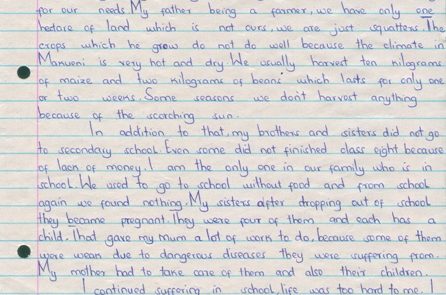 for our needs My father being a farmer, we have only one
hectare of land which is not ours, we are just squatters. The
crops which he grow do not do well because the climate in
Makueni is very hot and dry We usually harvest ten kilograms
of maize and two kilograms of beans which lasts for only one
or two weeks. Some seasons we don't harvest anything
because of the scorching sun.
In addition to that, my brothers and sisters did not go
to secondary school. Even some did not finished class eight because
of lack of money. I am the only one in our family who is in
school. We used to go to school without food and from school
again we found nothing. My sisters after dropping out of school
they became pregnant. They were four of them and each has a
child. That gave my mum a lot of work to do, because some of them
were weak due to dangerous diseases they were suffering from.
My mother had to take care of them and also their children.
I continued suffering in school, life was too hard to me. I